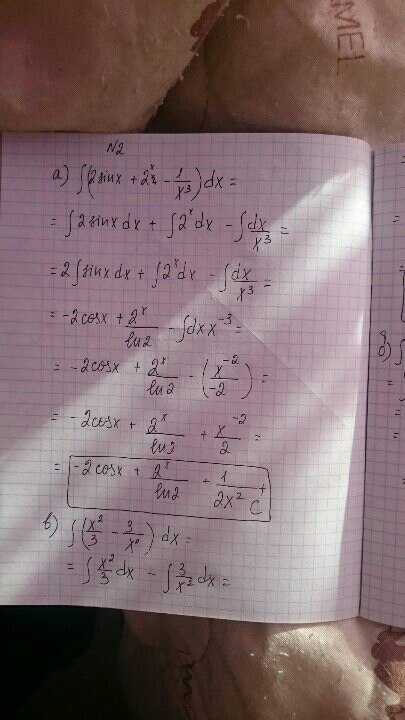 N2
а) ∫(2sinx + 2ˣ - 1/x³)dx =
= ∫2sinx dx + ∫2ˣdx - ∫dx/x³ =
= 2∫sinx dx + ∫2ˣdx - ∫dx/x³ =
= -2cosx + 2ˣ/ln2 - ∫dx x⁻³ =
= -2cosx + 2ˣ/ln2 - (x⁻²/-2) =
= -2cosx + 2ˣ/ln2 + x⁻²/2 =
= -2cosx + 2ˣ/ln2 + 1/2x² + C
в) ∫(x²/3 - 3/x²) dx =
= ∫x²/3 dx - ∫3/x² dx =
б) ∫